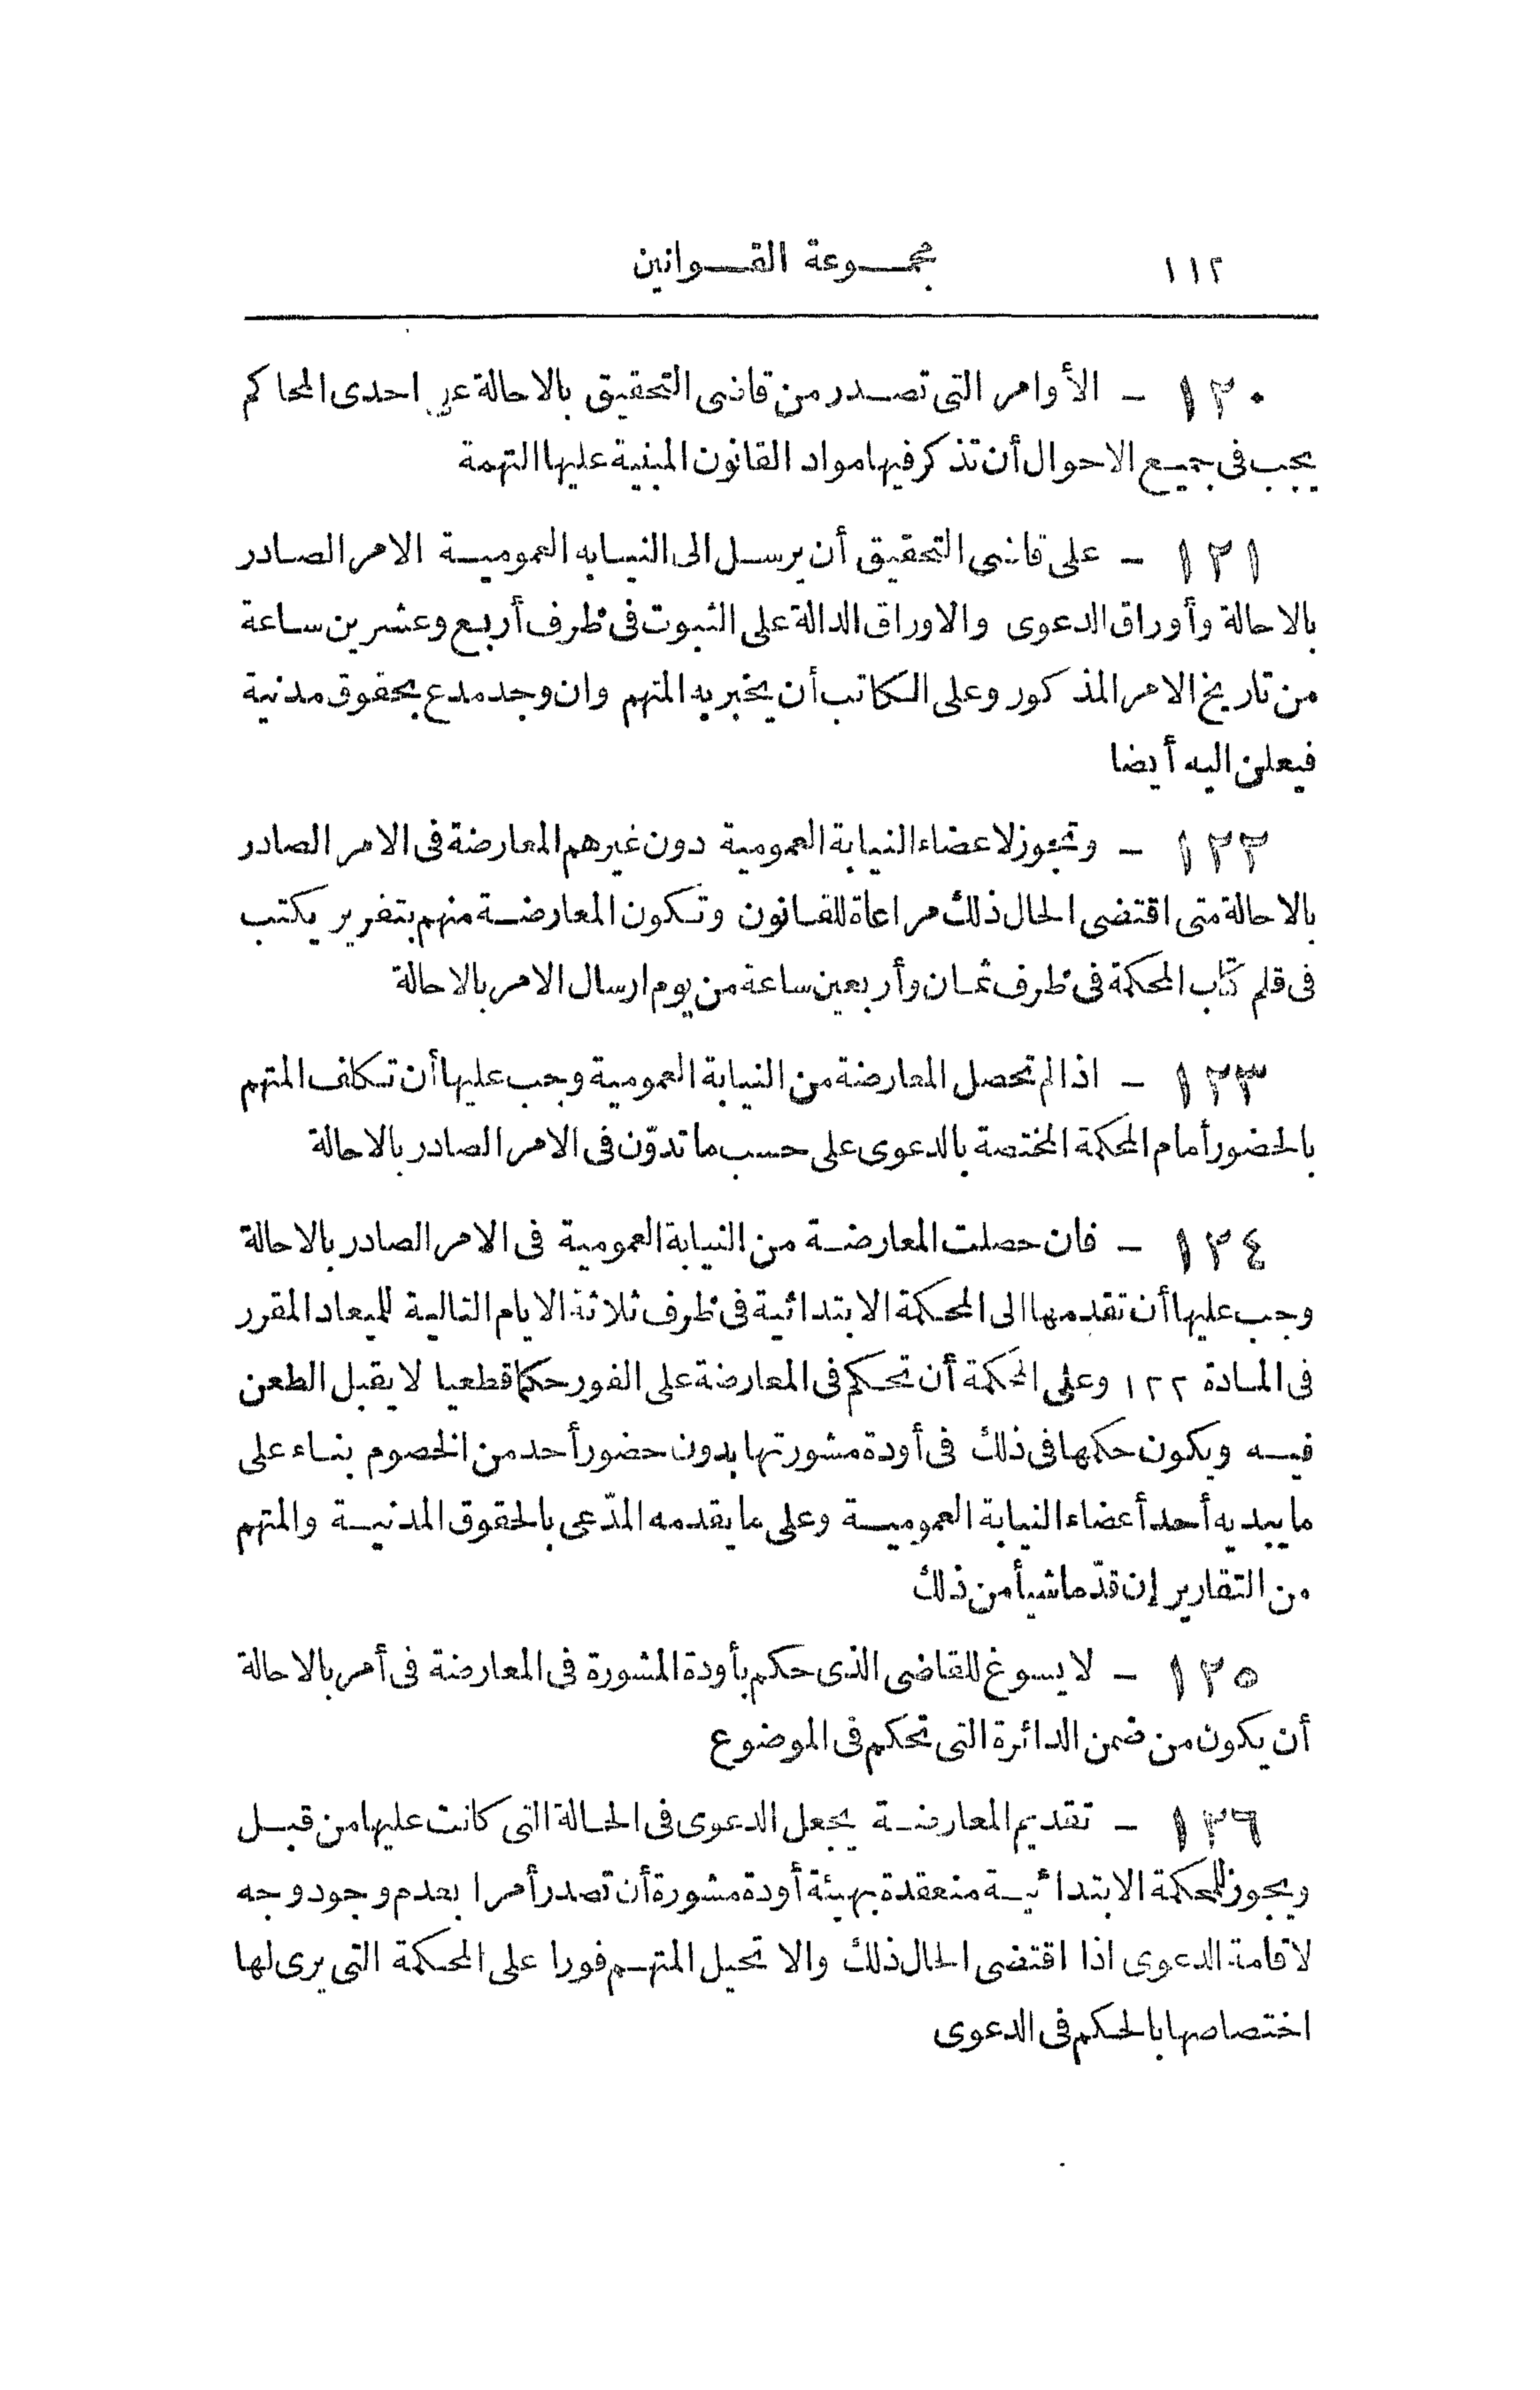 ١١٢ مجموعة القوانين
١٢٠ – الأوامر التى تصدر من قاضى التحقيق بالاحالة على احدى المحاكم
يجب فى جميع الاحوال أن تذكر فيها مواد القانون المبنية عليها التهمة
١٢١ – على قاضى التحقيق أن يرسل الى النيابه العمومية الامر الصادر
بالاحالة وأوراق الدعوى والاوراق الدالة على الثبوت فى ظرف أربع وعشرين ساعة
من تاريخ الامر المذكور وعلى الكاتب أن يخبر به المتهم وان وجد مدع بحقوق مدنية
فيعلن اليه أيضا
١٢٢ – وتجوز لاعضاء النيابة العمومية دون غيرهم المعارضة فى الامر الصادر
بالاحالة متى اقتضى الحال ذلك مراعاة للقانون وتكون المعارضة منهم بتقرير يكتب
فى قلم كتاب المحكمة فى ظرف ثمان وأربعين ساعة من يوم ارسال الامر بالاحالة
١٢٣ – اذا لم تحصل المعارضة من النيابة العمومية وجب عليها أن تكلف المتهم
بالحضور أمام المحكمة المختصة بالدعوى على حسب ما تدوّن فى الامر الصادر بالاحالة
١٢٤ – فان حصلت المعارضة من النيابة العمومية فى الامر الصادر بالاحالة
وجب عليها أن تقدمها الى المحكمة الابتدائية فى ظرف ثلاثة الايام التالية للميعاد المقرر
فى المادة ١٢٢ وعلى المحكمة أن تحكم فى المعارضة على الفور حكما قطعيا لا يقبل الطعن
فيه ويكون حكمها فى ذلك فى أودة مشورتها بدون حضور أحد من الخصوم بناء على
ما يبديه أحد أعضاء النيابة العمومية وعلى ما يقدمه المدّعى بالحقوق المدنية والمتهم
من التقارير إن قدّما شيأ من ذلك
١٢٥ – لا يسوغ للقاضى الذى حكم بأودة المشورة فى المعارضة فى أمر بالاحالة
أن يكون من ضمن الدائرة التى تحكم فى الموضوع
١٢٦ – تقديم المعارضة يجعل الدعوى فى الحالة التى كانت عليها من قبل
ويجوز للمحكمة الابتدائية منعقدة بهيئة أودة مشورة أن تصدر أمرا بعدم وجود وجه
لاقامة الدعوى اذا اقتضى الحال ذلك والا تحيل المتهم فورا على المحكمة التى يرى لها
اختصاصها بالحكم فى الدعوى